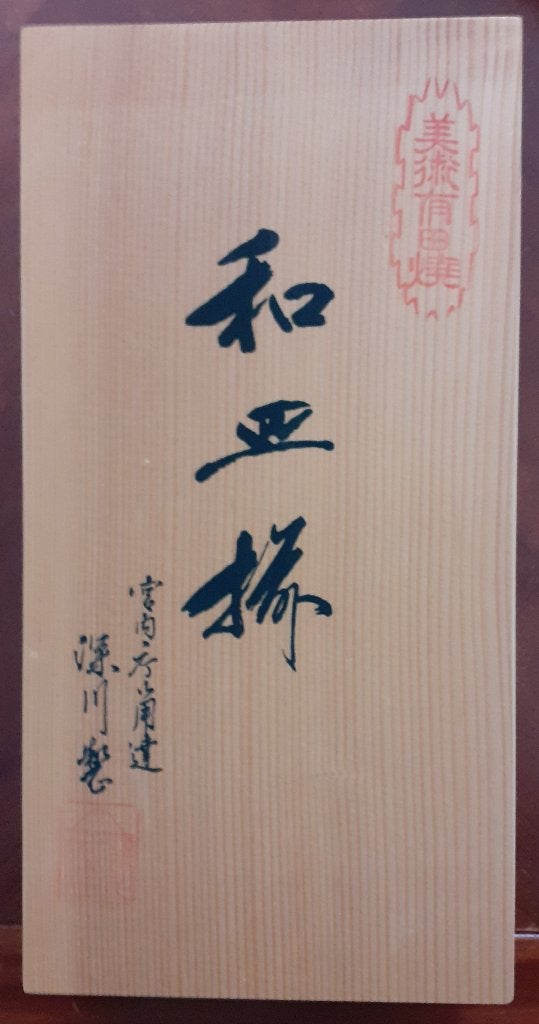 美術有田燒
和皿揃
宮内庁御用達
深川製